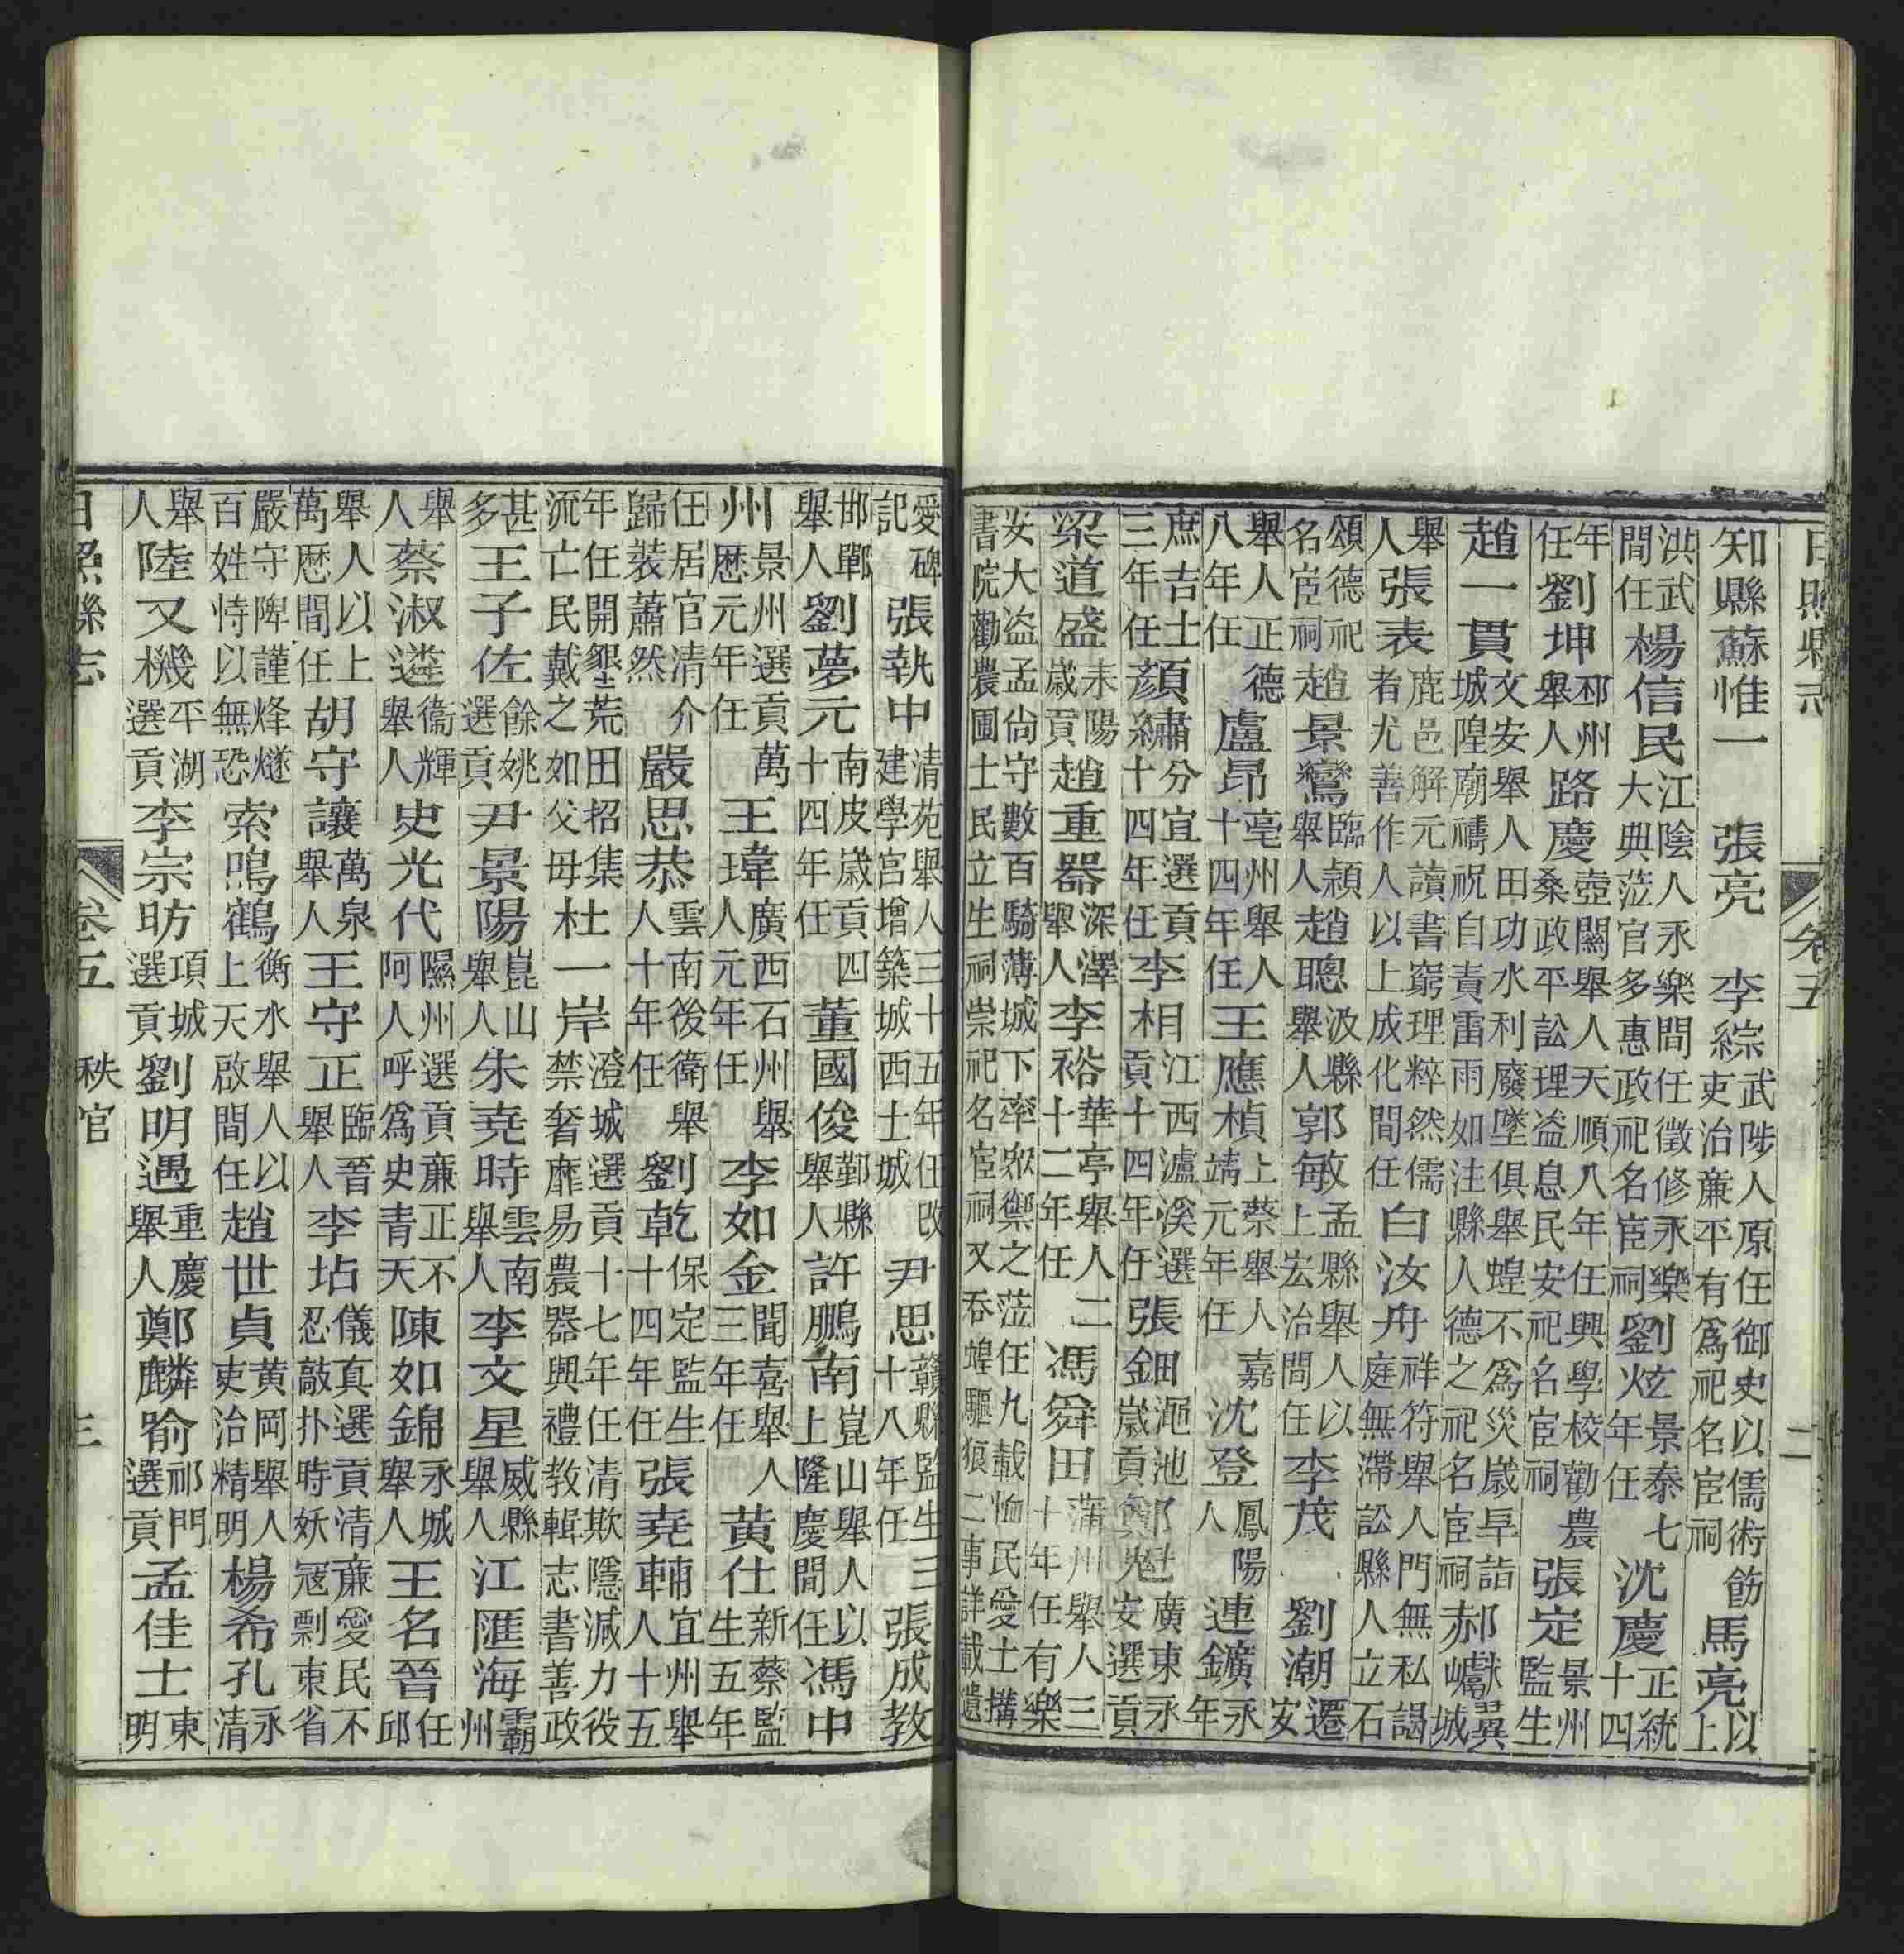 日照縣志 卷五 二
知縣蘇惟一 張亮 李綜武陟人原任御史以儒術飭吏治廉平有爲祀名宦祠馬亮以上
洪武間任楊信民江陰人永樂間任徵修永樂大典蒞官多惠政祀名宦祠劉炫景泰七年任沈慶正統十四
年任劉坤邳州舉人路慶壺關舉人天順八年任興學校勸農桑政平訟理盜息民安祀名宦祠張定景州監生
趙一貫文安舉人田功水利廢墜俱舉蝗不爲災歲旱詣城隍廟禱祝自責雷雨如注縣人德之祀名宦祠郝巘翼城
舉人張表鹿邑解元讀書窮理粹然儒者尤善作人以上成化間任白汝舟祥符舉人門無私謁庭無滯訟縣人立石
頌德祀名宦祠趙景鸞臨潁舉人趙聰汲縣舉人郭敏孟縣舉人以上宏治間任李茂 劉潮遷安
舉人正德八年任盧昂亳州舉人十四年任王應楨上蔡舉人嘉靖元年任沈登鳳陽人連鑛永年
庶吉士三年任顏繡分宜選貢十四年任李相江西瀘溪選貢十四年任張鈿澠池歲貢廣東永安選貢
梁道盛耒陽歲貢趙重器深澤舉人李裕華亭舉人二十二年任馮舜田蒲州舉人三十年任有樂
安大盜孟尚守數百騎薄城下率眾禦之蒞任九載恤民愛士搆書院勸農圃士民立生祠崇祀名宦祠又吞蝗驅狼二事詳載遺
愛碑記張執中清苑舉人三十五年任改建學宮增築城西土城尹思贛縣監生三十八年任張成教
邯鄲舉人劉夢元南皮歲貢四十四年任董國俊鄞縣舉人許鵬南崑山舉人以上隆慶間任馮中
州景州選貢萬歷元年任王瑋廣西石州舉人元年任李如金聞喜舉人三年任黃仕新蔡監生五年
任居官清介歸裝蕭然嚴思恭雲南後衛舉人十年任劉乾保定監生十四年任張堯輔宜州舉人十五
年任開墾荒田招集流亡民戴之如父母杜一岸澄城選貢十七年任清欺隱減力役禁奢靡易農器興禮教輯志書善政
甚多王子佐餘姚選貢尹景陽崑山舉人朱堯時雲南舉人李文星威縣舉人江匯海霸州
舉人蔡淑逵衞輝舉人史光代隰州選貢廉正不阿人呼爲史青天陳如錦永城舉人王名晉任邱
舉人以上萬歷間任胡守讓萬泉舉人王守正臨晉舉人李坫儀真選貢清廉愛民不忍敲扑時妖寇剽東省
嚴守陴謹烽燧百姓恃以無恐索鳴鶴衡水舉人以上天啟間任趙世貞黃岡舉人吏治精明楊希孔永清
舉人陸又機平湖選貢李宗昉項城選貢劉明遇重慶舉人鄭麟喻祁門選貢孟佳士東明
日照縣志 卷五 秩官 三